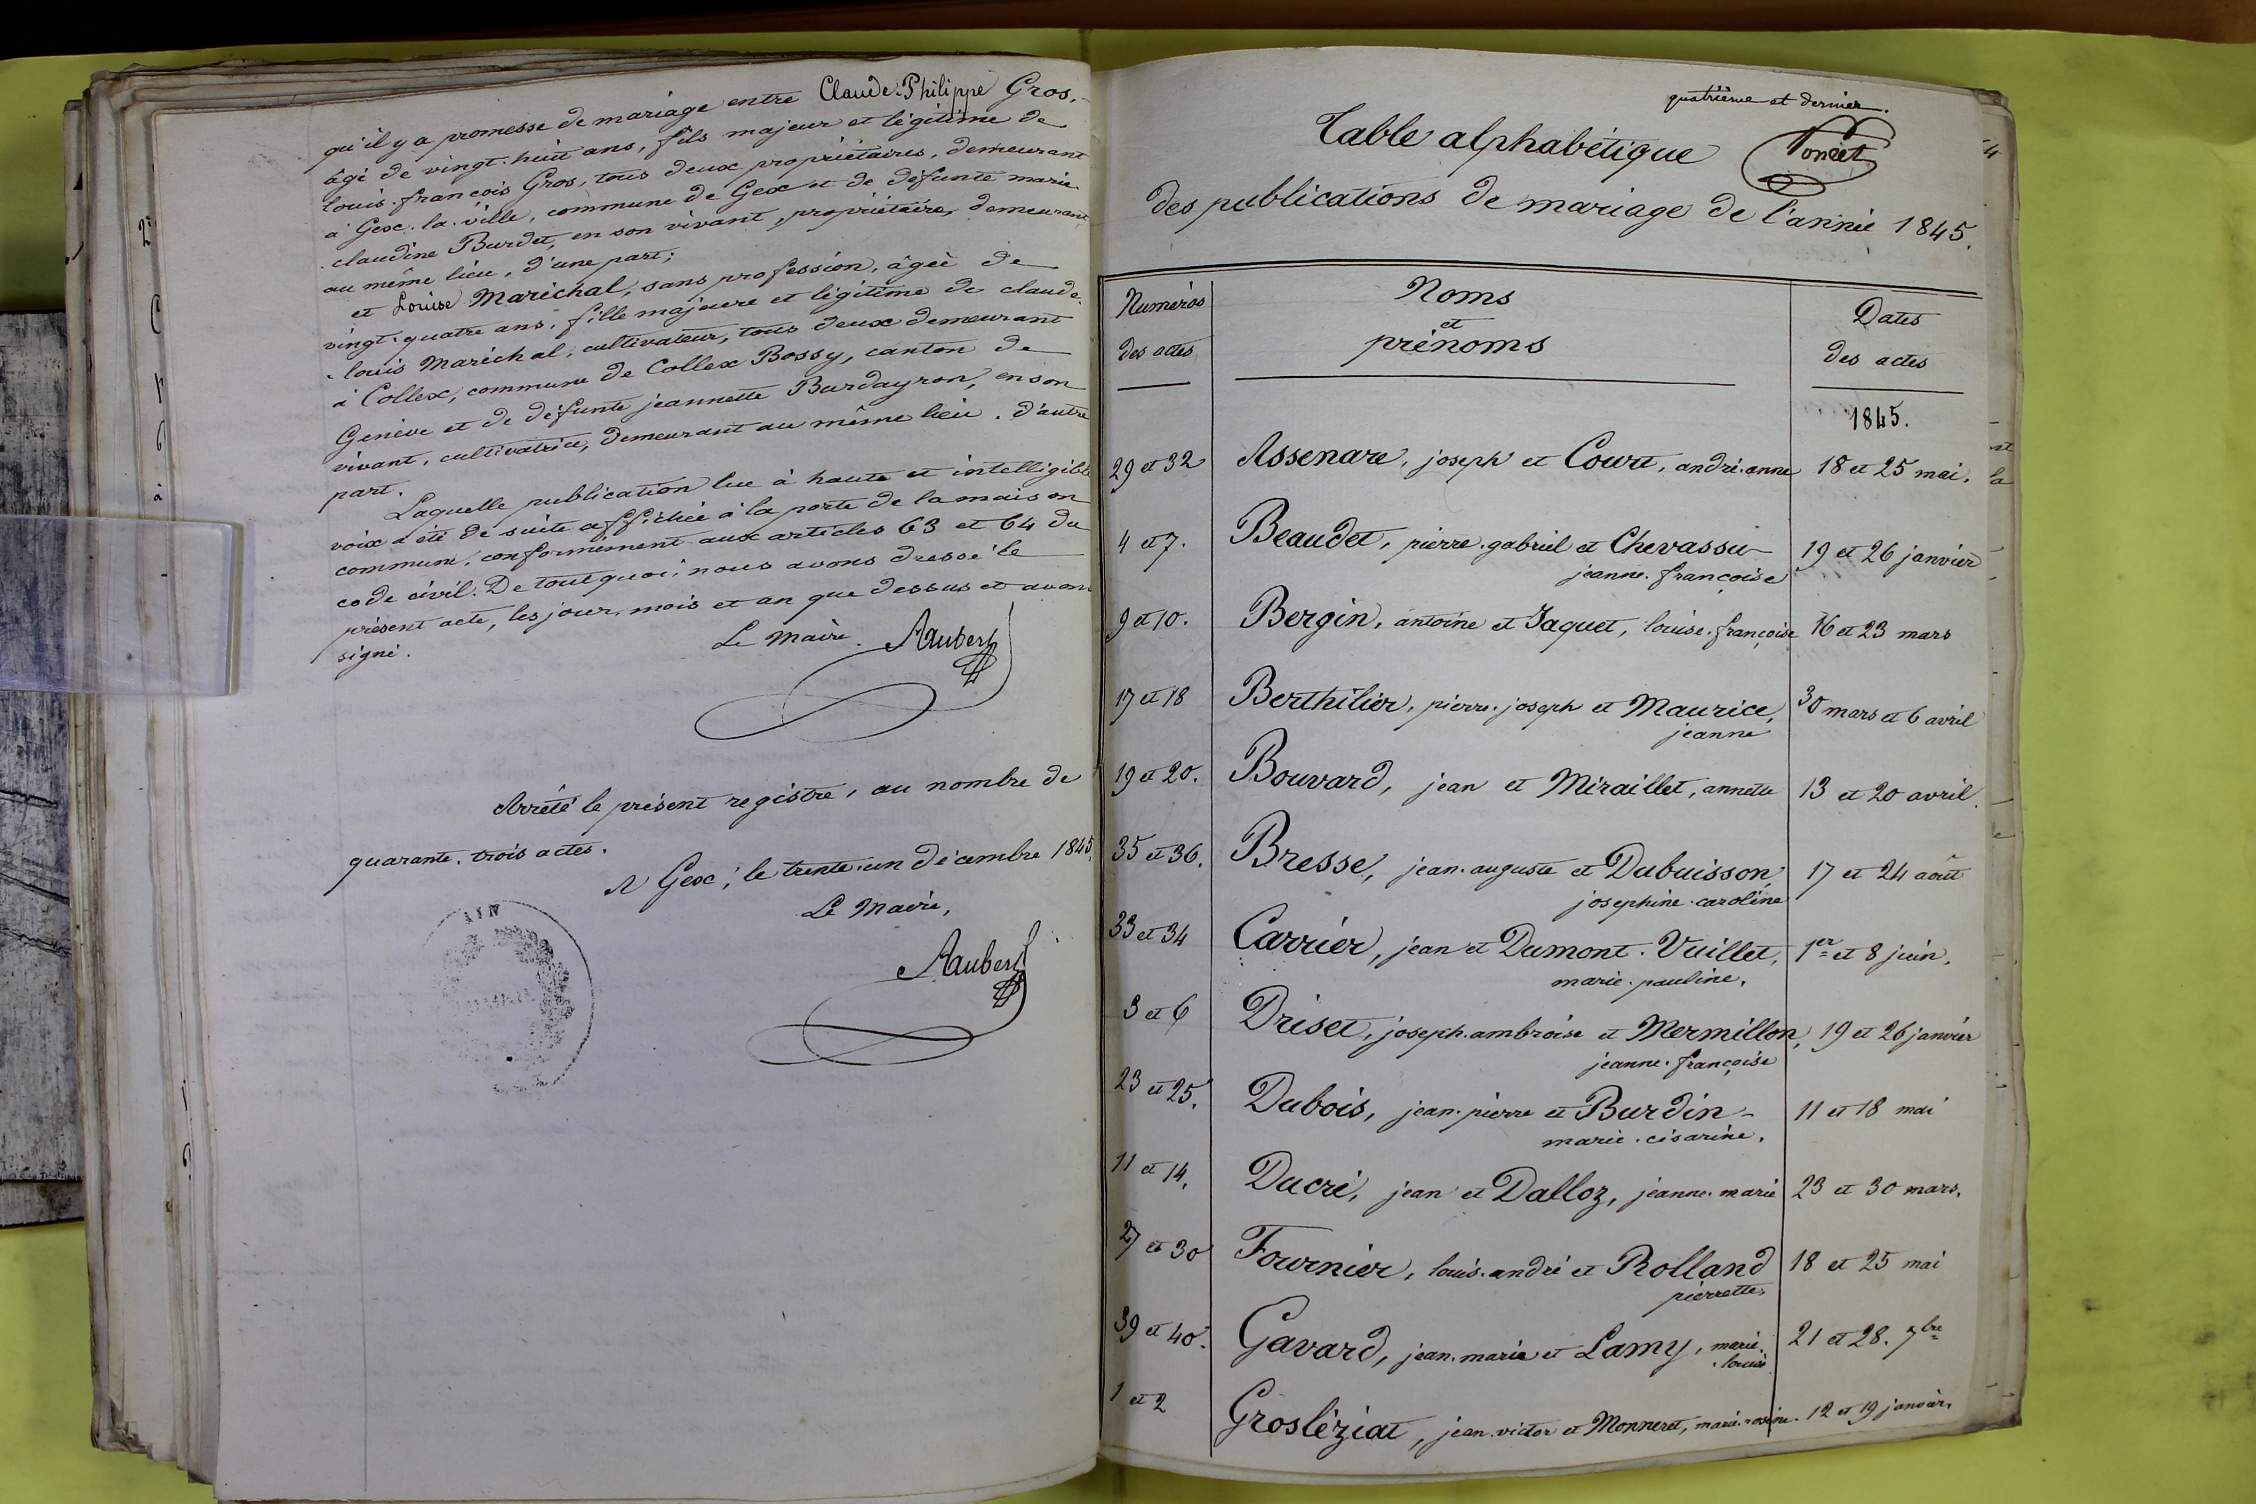 qu'il y a promesse de mariage entre Claude-Philippe Gros,
âgé de vingt-huit ans, fils majeur et légitime de
louis-françois Gros, tous deux propriétaires, demeurant
à Gex-la-ville, commune de Gex et de défunte marie
claudine Burdet, en son vivant, propriétaire, demeurant
au même lieu, d'une part;
et Louise Maréchal, sans profession, âgée de
vingt-quatre ans, fille majeure et légitime de claude-
louis Maréchal, cultivateur, tous deux demeurant
à Collex, commune de Collex Bossy, canton de
Genève et de défunte jeannette Burdayron, en son
vivant, cultivatrice, demeurant au même lieu. d'autre
part.
Laquelle publication lue à haute et intelligible
voix a été de suite affichée à la porte de la maison
commune, conformément aux articles 63 et 64 du
code civil. De tout quoi, nous avons dressé le
présent acte, les jour, mois et an que dessus et avons
signé.
Le Maire. Aaubert
Arrêté le présent registre, au nombre de
quarante-trois actes.
A Gex, le trente-un décembre 1845.
Le Maire,
Aaubert
AIN
quatrième et dernier.
Table alphabétique Poncet
des publications de mariage de l'année 1845.
Numéros
des actes
Noms
et
prénoms
Dates
des actes
1845.
29 et 32 Assenare, joseph et Court, andré-anne 18 et 25 mai.
4 et 7. Beaudet, pierre-gabriel et Chevassu 19 et 26 janvier
jeanne-françoise
9 et 10. Bergin, antoine et Jaquet, louise-françoise 16 et 23 mars
17 et 18 Berthilier, pierre-joseph et Maurice, 30 mars et 6 avril
jeanne
19 et 20. Bouvard, jean et Miraillet, annette 13 et 20 avril.
35 et 36. Bresse, jean-auguste et Dubuisson, 17 et 24 août
josephine-caroline
33 et 34 Carrier, jean et Dumont-Vuillet, 1er et 8 juin.
marie-pauline.
3 et 6 Driset, joseph-ambroise et Mermillon, 19 et 26 janvier
jeanne-françoise
23 et 25. Dubois, jean-pierre et Burdin- 11 et 18 mai
marie-césarine.
11 et 14. Ducré, jean et Dalloz, jeanne-marie 23 et 30 mars.
27 et 30 Fournier, louis-andré et Rolland 18 et 25 mai
pierrette,
39 et 40. Gavard, jean-marie et Lamy, marie- 21 et 28. 7bre
louise
1 et 2 Grosléziat, jean-victor et Monneret, marie-rosine. 12 et 19 janvier.